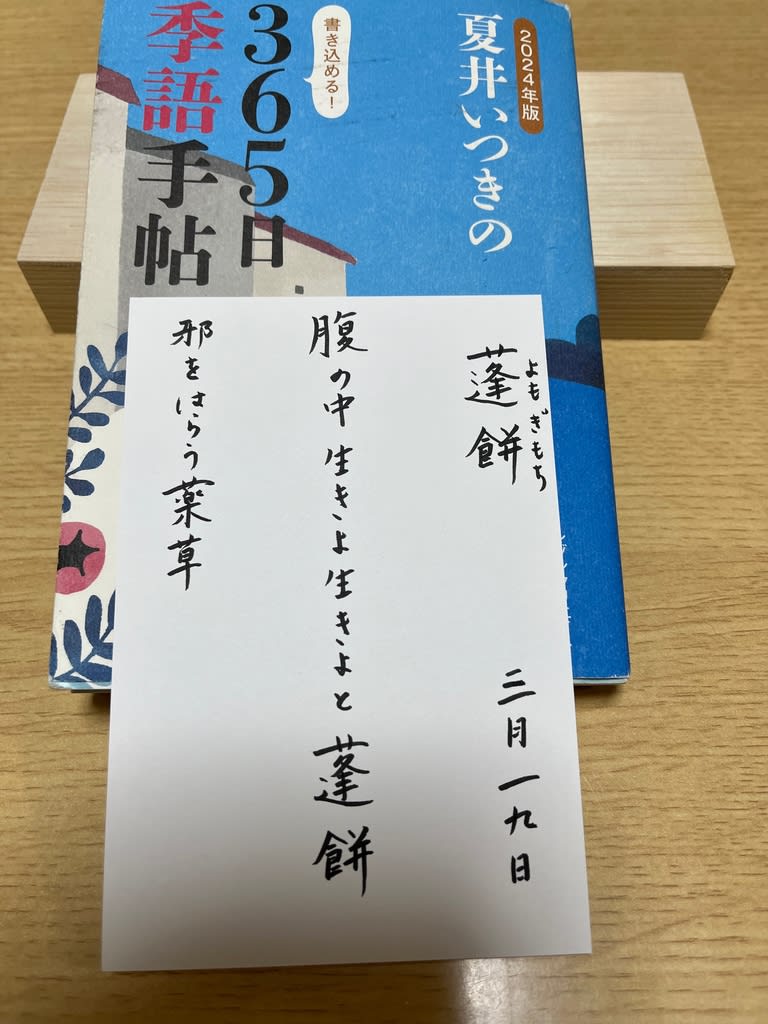 2024年版
夏井いつきの
書き込める!
365日
季語手帖
蓬餅
よもぎもち
三月一九日
腹の中生きよ生きよと蓬餅
邪をはらう薬草